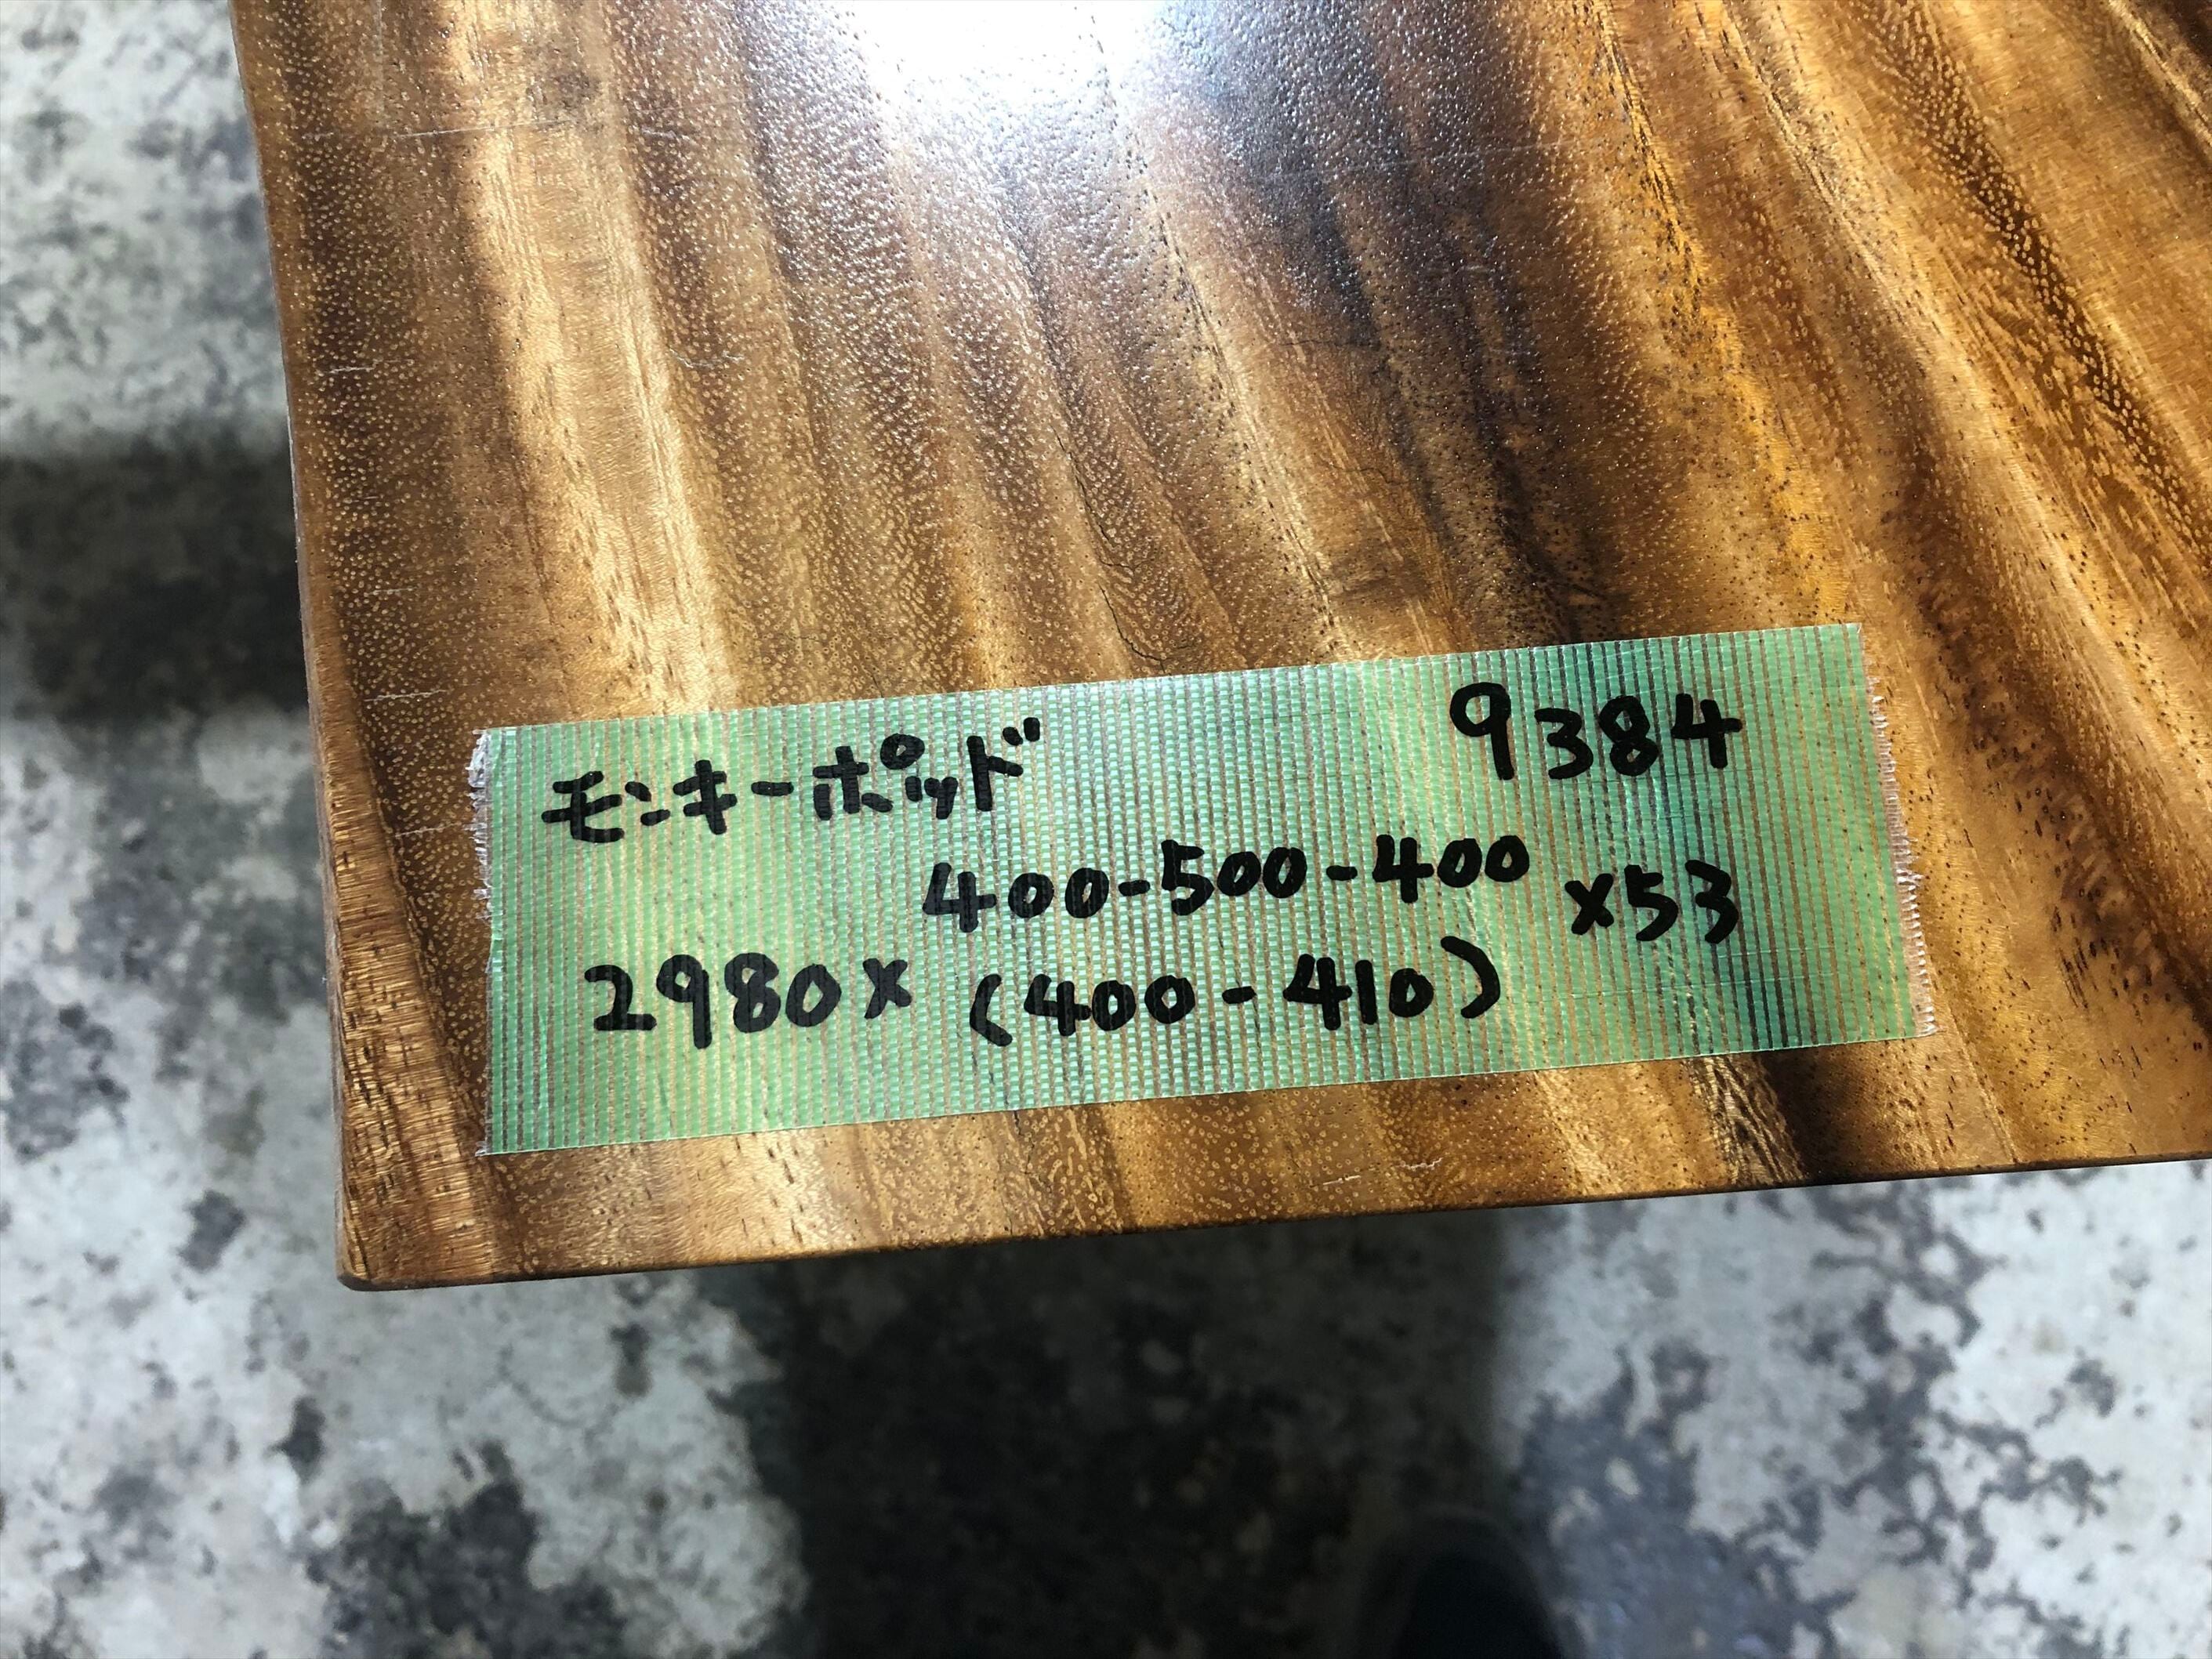 モンキーポッド 9384
400-500-400
2980×(400-410)×53